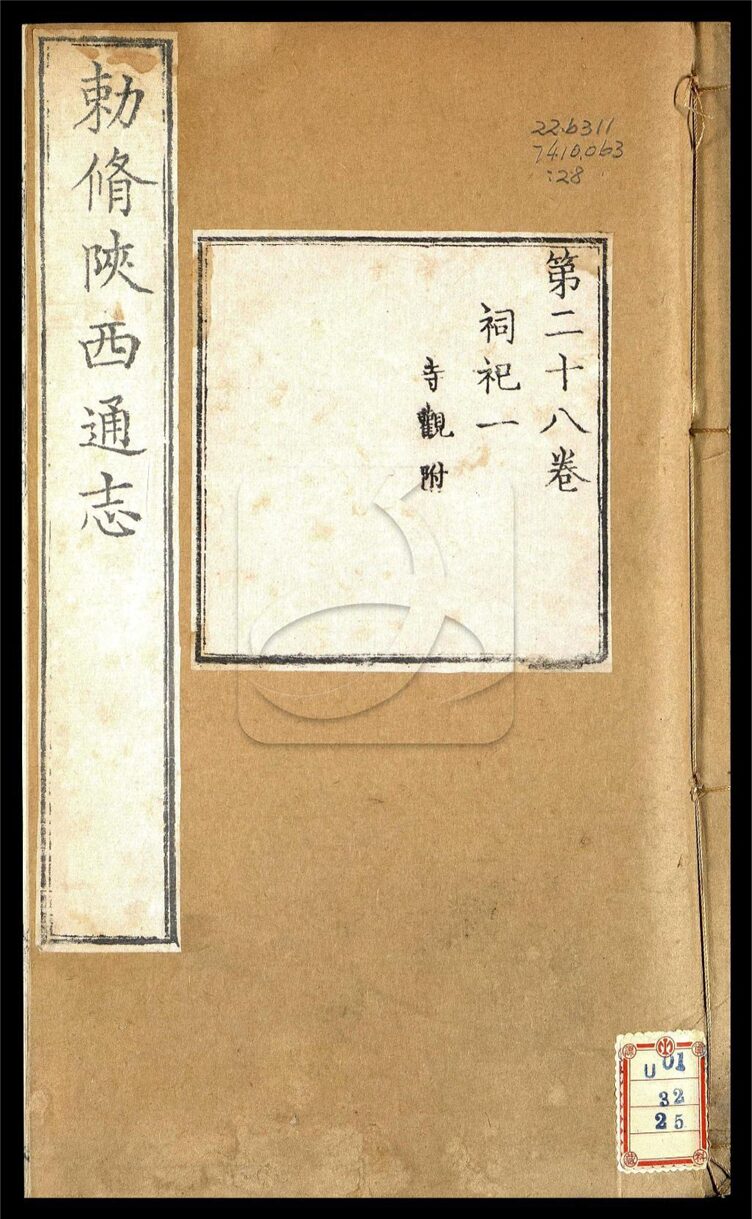 勅脩陝西通志
第二十八卷
祠祀一
寺觀附
22.6311
7410.063
:28
U 01
32
25